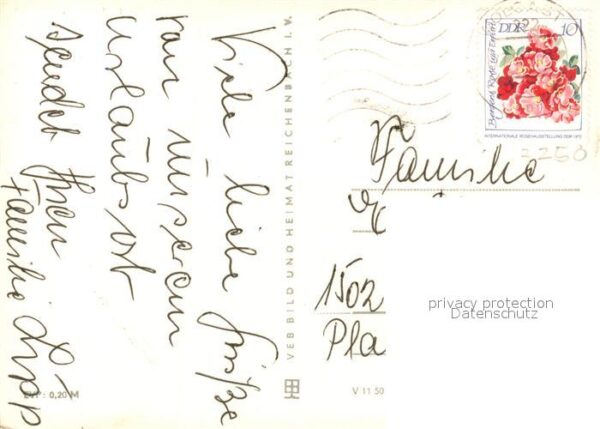 Viele liebe Grüße
von unserem
Urlaubsort
sendet Ihnen
Familie Lipp
EVP: 0,20 M
VEB BILD UND HEIMAT REICHENBACH I. V.
V 11 50
DDR 10
INTERNATIONALE ROSENAUSSTELLUNG DDR 1972
Familie
1502
privacy protection
Datenschutz